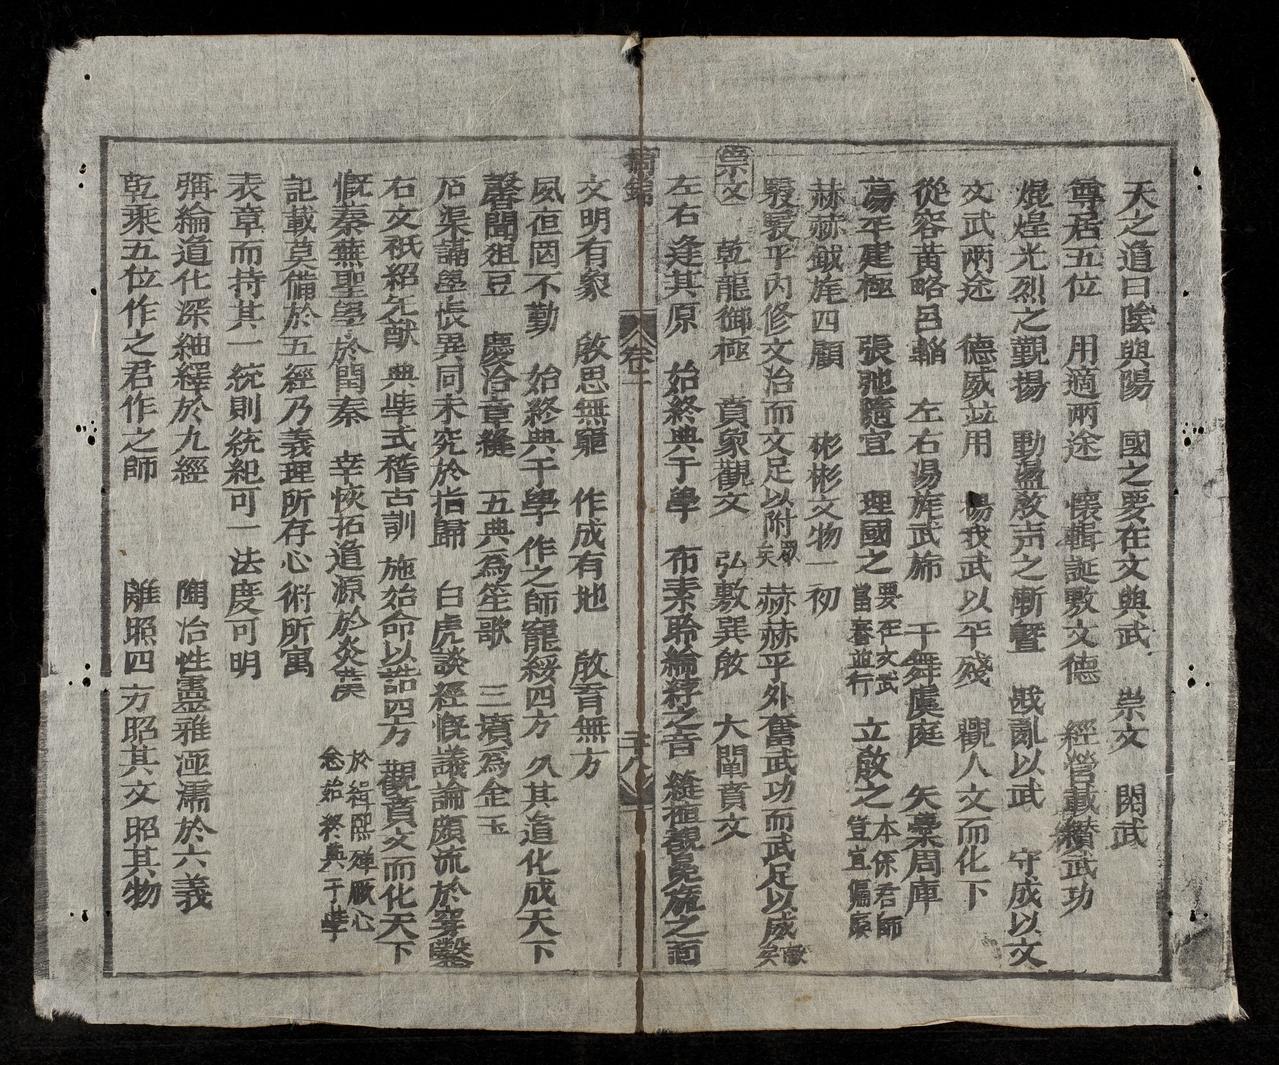 天之道曰陰與陽 國之要在文與武 崇文 閱武
尊居五位 用適兩途 懷輯誕敷文德 經營載纘武功
焜煌光烈之覲揚 動盪敎声之漸暨 戡亂以武 守成以文
文武兩途 德威並用 揚我武以平殘 觀人文而化下
從容黃略邑韜 左右湯旌武斾 干舞虞庭 矢櫜周庫
蕩平建極 張弛隨宜 理國之要在文武當審並行 立敎之本係君師豈宜偏廢
赫赫鉞旄四顧 彬彬文物一初
駸駸乎內修文治而文足以附衆矣 赫赫乎外奮武功而武足以威敵矣
崇文 乾龍御極 賁象觀文 弘敷巽敎 大闡賁文
左右逢其原 始終典于學 布素聆綸綍之音 縫極觀冕旒之面
卷一
文明有象 敎思無窮 作成有地 敎育無方
夙但罔不勤 始終典于學 作之師寵綏四方 久其道化成天下
馨聞俎豆 慶洽章縫 五典爲笙歌 三墳爲金玉
石渠講學悵異同未究於指歸 白虎談經慨議論頗流於穿鑿
右文祇紹先猷 典學式稽古訓 施始命以誥四方 觀賁文而化天下
慨秦蕪聖學於閏秦 幸恢拓道源於炎漢 於緝熙殫厥心 念始終典于學
記載莫備於五經乃義理所存心術所寓
表章而持其一統則統紀可一法度可明
彌綸道化深紬繹於九經 陶冶性靈雅涵濡於六義
乾乘五位作之君作之師 離照四方昭其文昭其物